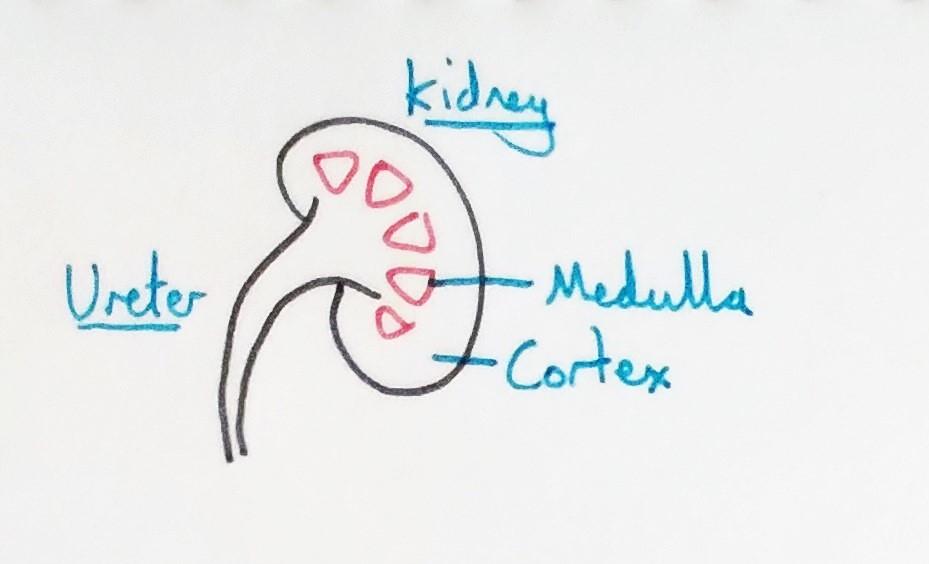 Kidney
Ureter
Medulla
Cortex